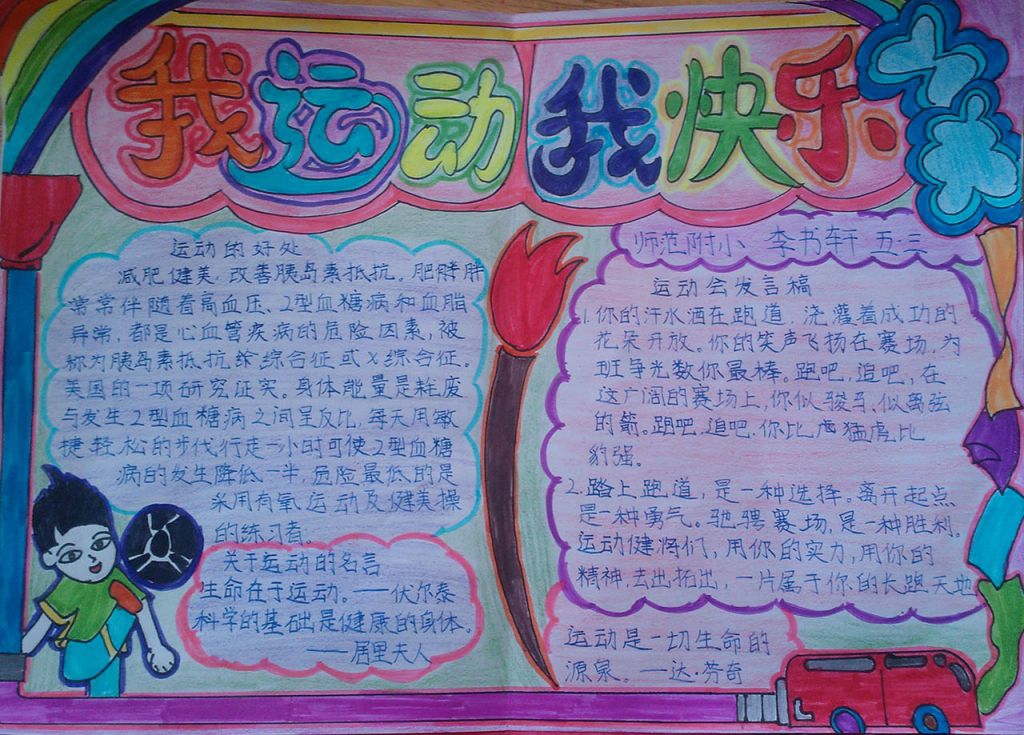 我运动 我快乐
运动的好处
减肥健美,改善胰岛素抵抗。肥胖胖
常常伴随着高血压、2型血糖病和血脂
异常,都是心血管疾病的危险因素,被
称为胰岛素抵抗给综合征或X综合征。
美国的一项研究证实。身体能量是耗废
与发生2型血糖病之间呈反比,每天用敏
捷轻松的步代行走一小时可使2型血糖
病的发生降低一半,危险最低的是
采用有氧运动及健美操
的练习者。
关于运动的名言
生命在于运动。——伏尔泰
科学的基础是健康的身体。
——居里夫人
师范附小 李书轩 五三
运动会发言稿
1.你的汗水洒在跑道,浇灌着成功的
花朵开放。你的笑声飞扬在赛场,为
班争光数你最棒。跑吧,追吧,在
这广阔的赛场上,你似骏马、似离弦
的箭。跑吧,追吧,你比虎猛虎比
豹强。
2.踏上跑道,是一种选择。离开起点
是一种勇气。驰骋赛场,是一种胜利。
运动健将们,用你的实力,用你的
精神,去出拓出,一片属于你的长跑天地
运动是一切生命的
源泉。—达·芬奇